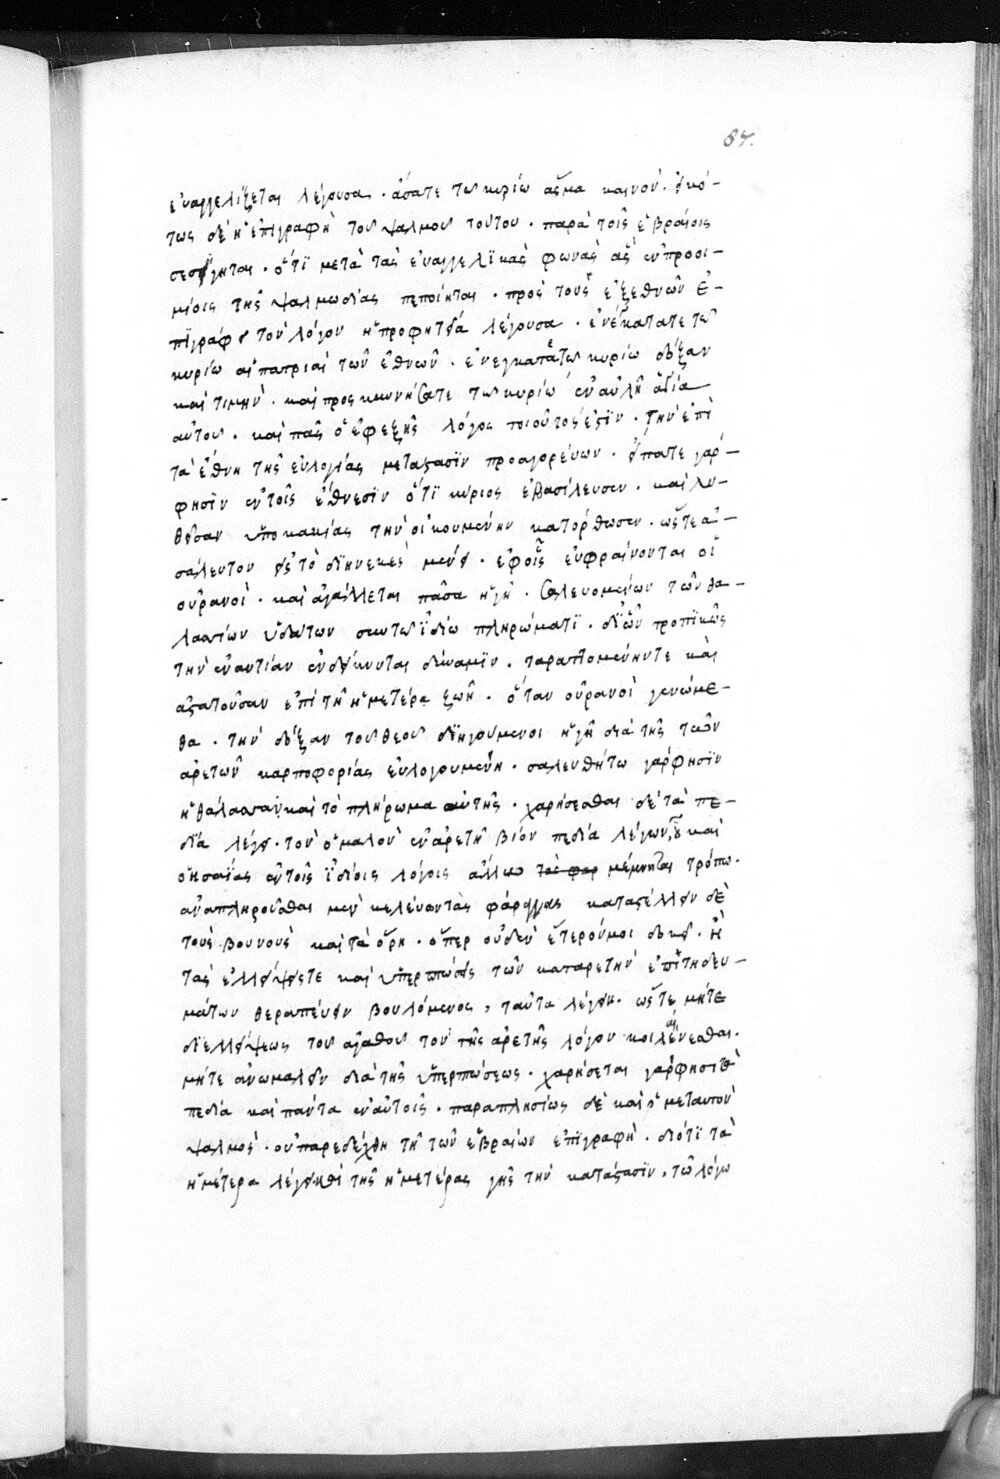 87.
εὐαγγελίζεται λέγουσα · ᾄσατε τῶ κυρίω ἆσμα καινόν · εἰκό-
τως δὲ ἡ ἐπιγραφὴ τοῦ ψαλμοῦ τούτου · παρὰ τοῖς ἑβραίοις
σεσίγηται · ὅτι μετὰ τὰς εὐαγγελϊκὰς φωνὰς ἃς ἐν προοι-
μίοις τῆς ψαλμωδίας πεποίηται · πρὸς τοὺς ἐξ ἐθνῶν ἐ-
πϊγράφει τὸν λόγον ἡ προφητεία λέγουσα · ἐνέγκατε τῶ
κυρίω αἱ πατριαὶ τῶν ἐθνῶν · ἐνέγκατε τῶ κυρίω δόξαν
καὶ τιμὴν · καὶ προσκυνήσατε τῶ κυρίω ἐν αὐλῇ ἁγία
αὐτοῦ · καὶ πᾶς ὁ ἐφεξῆς λόγος τοιοῦτός ἐστϊν · τὴν ἐπὶ
τὰ ἔθνη τῆς εὐλογίας μετάστασϊν προαγορεύων · εἴπατε γάρ-
φησϊν ἐν τοῖς ἔθνεσϊν ὅτϊ κύριος ἐβασίλευσεν · καὶ λυ-
θεῖσαν ὑπὸ κακίας τὴν οἰκουμένην κατόρθωσεν · ὥστε ἀ-
σάλευτον εἰς τὸ διηνεκὲς μένειν · ἐφ οἷς εὐφραίνονται οἱ
οὐρανοὶ · καὶ ἀγάλλεται πᾶσα ἡ γῆ · σαλευομένων τῶν θα-
λασσίων ὑδάτων συν τῶ ἰδίω πληρώματϊ · δϊ ὧν τροπϊκῶς
τὴν ἐναντίαν ἐνδείκνυται δύναμϊν · ταραττομένην τε καὶ
ἀστατοῦσαν ἐπὶ τῇ ἡμετέρα ζωῇ · ὅταν οὐρανοὶ γενώμε-
θα · τὴν δόξαν τοῦ θεοῦ διηγούμενοι ἡ γῆ διὰ τῆς τῶν
ἀρετῶν καρποφορίας εὐλογουμένη · σαλευθήτω γάρ φησϊν
ἡ θάλασσα καὶ τὸ πλήρωμα αὐτῆς · χαρήσεσθαι δὲ τὰ πε-
δία λέγει · τὸν ὁμαλὸν ἐν ἀρετῇ βίον πεδία λέγων, οὗ καὶ
ὁ ἡσαίας ἐν τοῖς ἰδίοις λόγοις ἄλλω μέμνηται τρόπω ·
ἀναπληροῦσθαι μὲν κελεύων τὰς φάραγγας καταστέλλειν δὲ
τοὺς βουνοὺς καὶ τὰ ὄρη · ὅπερ οὐδὲν ἕτερόν μοι δοκεῖ · ἢ
τὰς ἐλλείψεις τε καὶ ὑπερπτώσεις τῶν κατ ἀρετὴν ἐπϊτηδευ-
μάτων θεραπεύειν βουλόμενος, ταῦτα λέγειν · ὥστε μήτε
δι ἐλλείψεως τοῦ ἀγαθοῦ τὸν τῆς ἀρετῆς λόγον κοιλαίνεσθαι ·
μήτε ἀνωμαλεῖν διὰ τῆς ὑπερπτώσεως · χαρήσεται γάρ φησι τὰ
πεδία καὶ πάντα ἐν αὐτοῖς · παραπλησίως δὲ καὶ ὁ μετ αυτὸν
ψαλμὸς · οὐ παρεδέχθη τῇ τῶν ἑβραίων ἐπϊγραφῇ · διότϊ τὰ
ἡμέτερα λέγει καὶ τῆς ἡμετέρας γῆς τὴν κατάστασϊν · τῶ λόγω